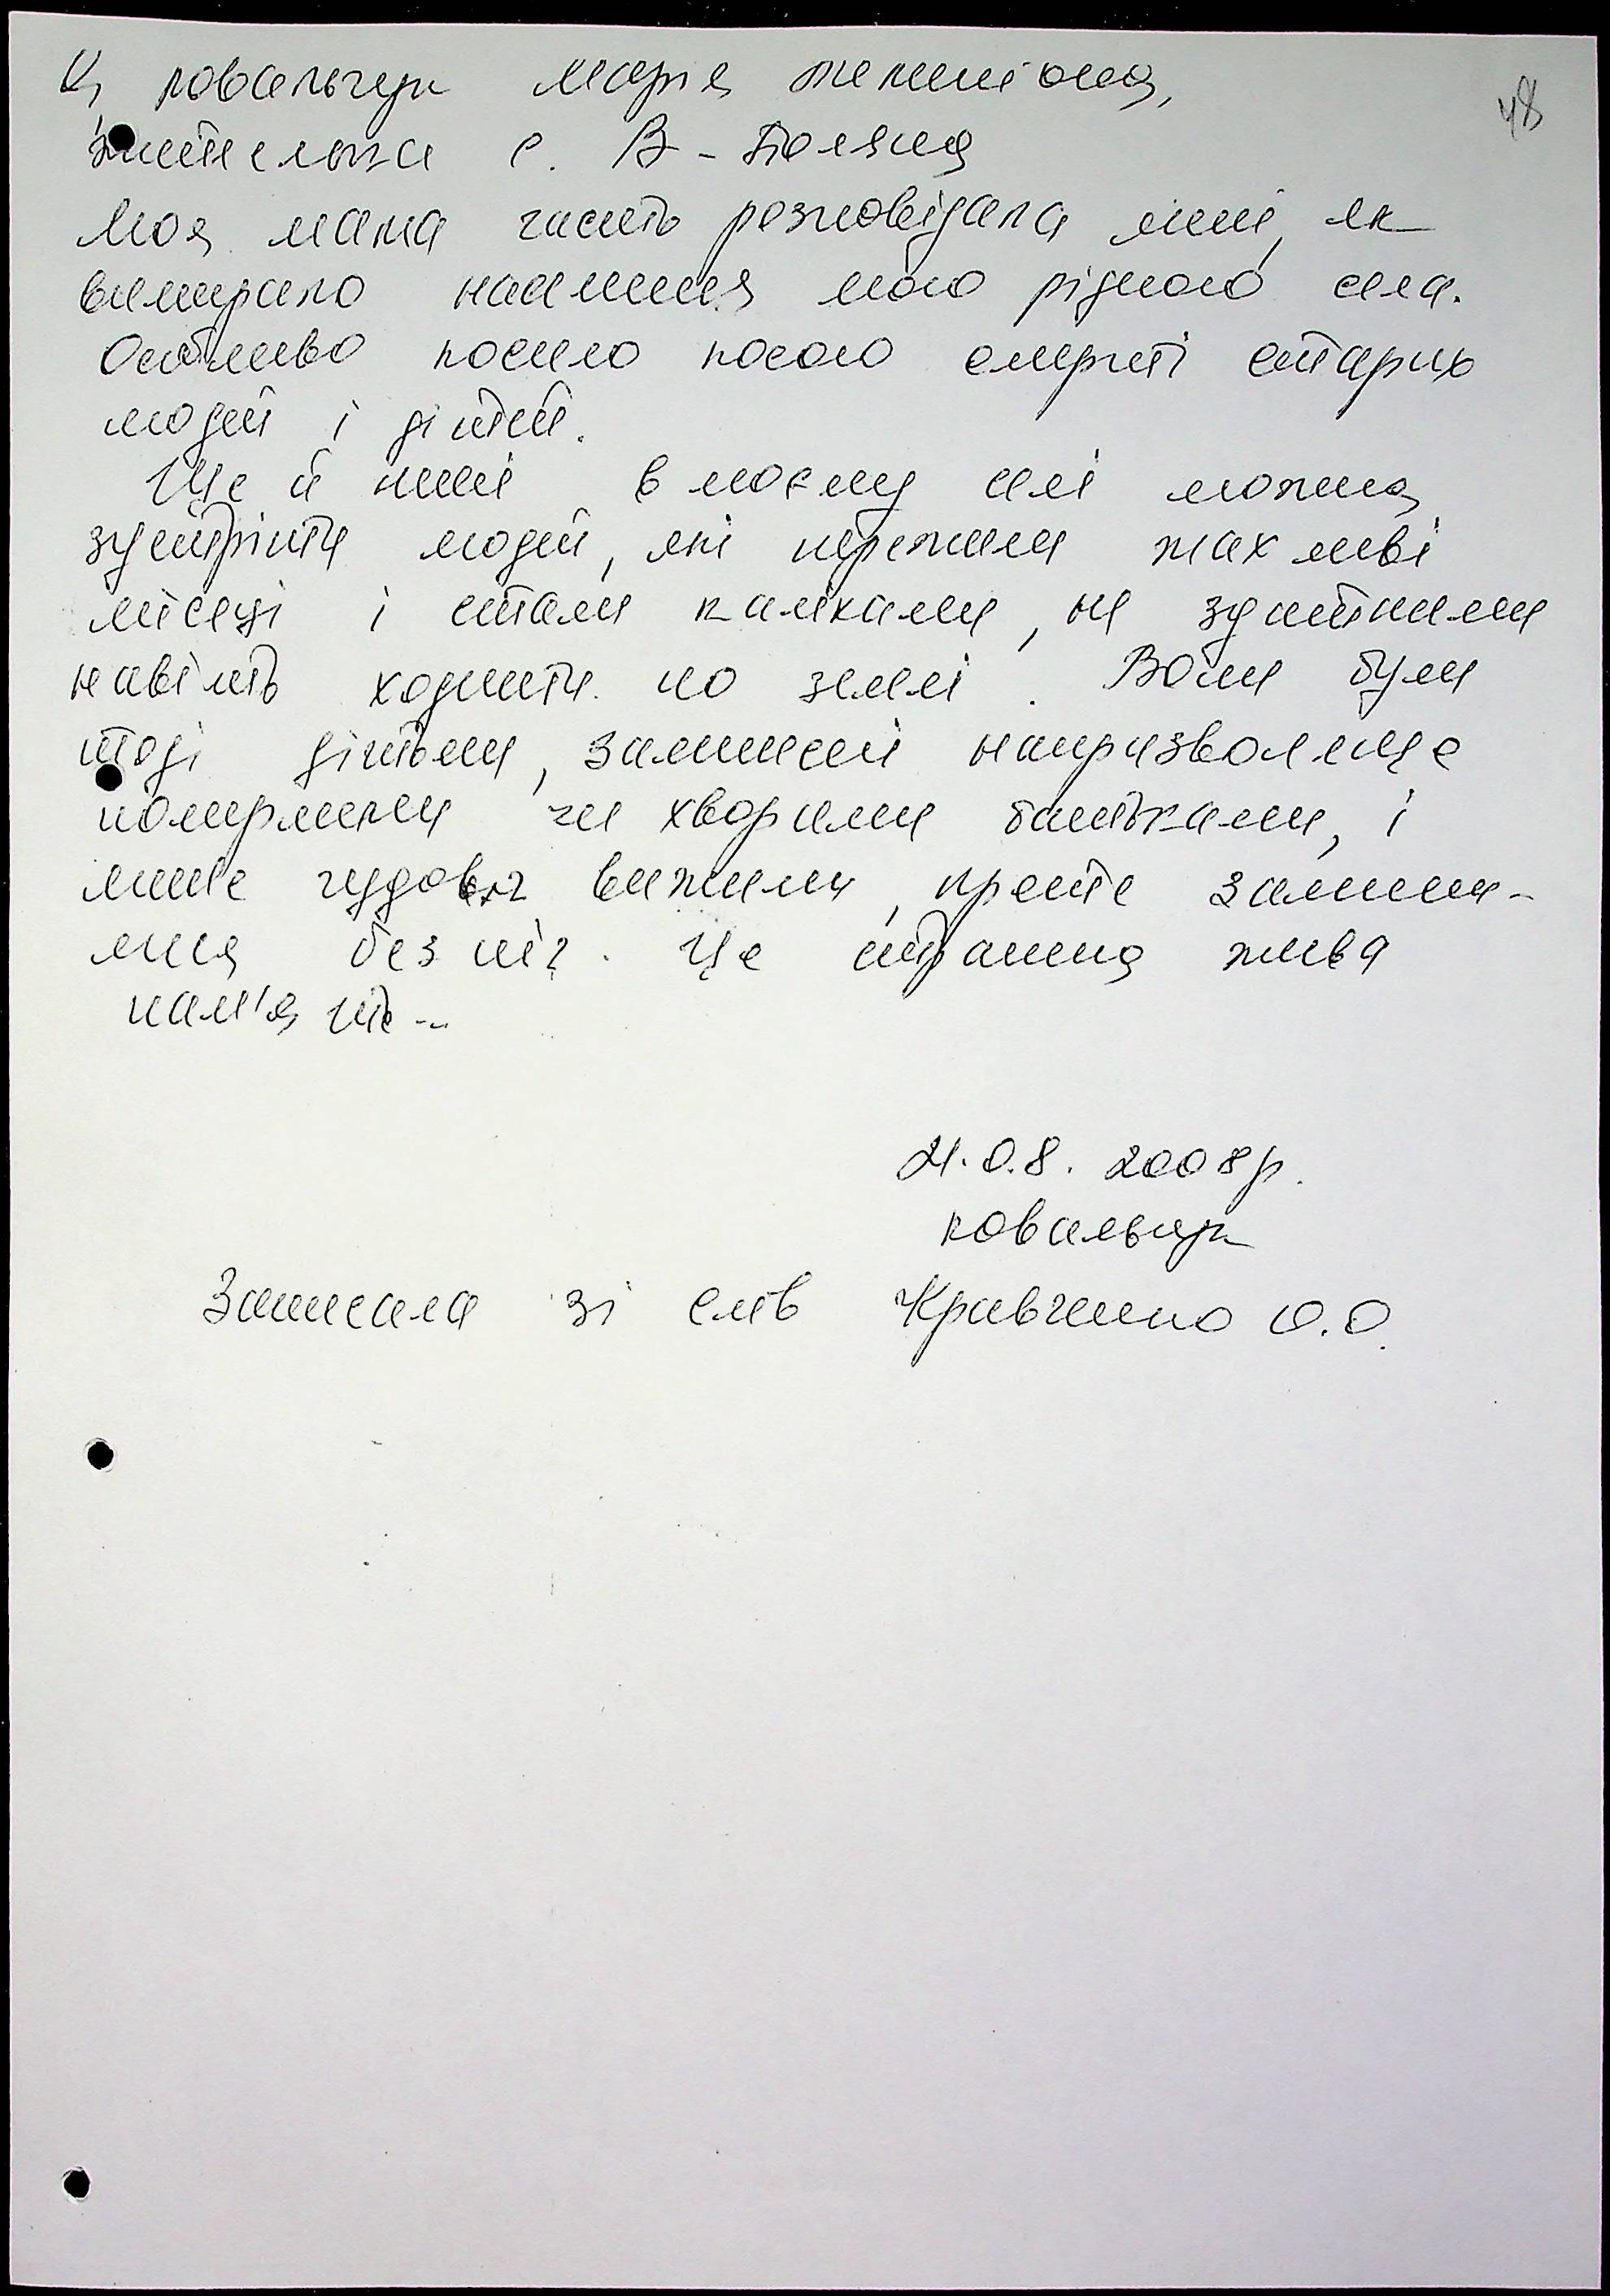 48
Я, Ковальчук Марія
жителька с. В-Поляна
Моя мама часто розповідала мені, як
вимирало населення мого рідного села.
Особливо косило косою смерті старих
людей і дітей.
Ще й нині в моєму селі можна
зустріти людей, які пережили жахливі
місяці і стали каліками, не здатними
навіть ходити по землі. Вони були
тоді дітьми, залишені напризволяще
померлими чи хворими батьками, і
лише чудом вижили, проте залиши-
лися без ніг. Це страшна жива
пам'ять...
21.0.8. 2008р.
Ковальчук
Записала зі слів Кравченко О.О.